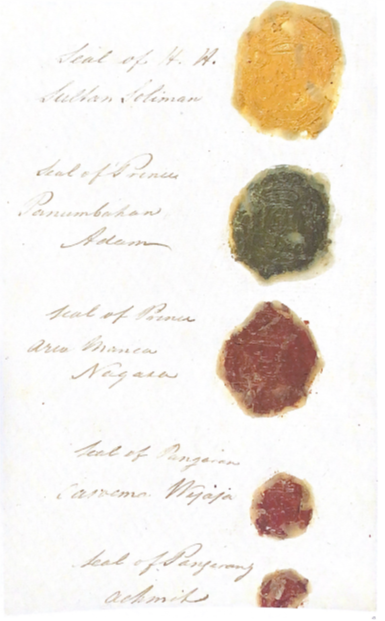 Seal of H. H.
Sultan Soliman
Seal of Prince
Panumbahan
Adam
Seal of Prince
Aria Manca
Nagara
Seal of Pangeran
Wijaja
Seal of Pangerang
Achmit